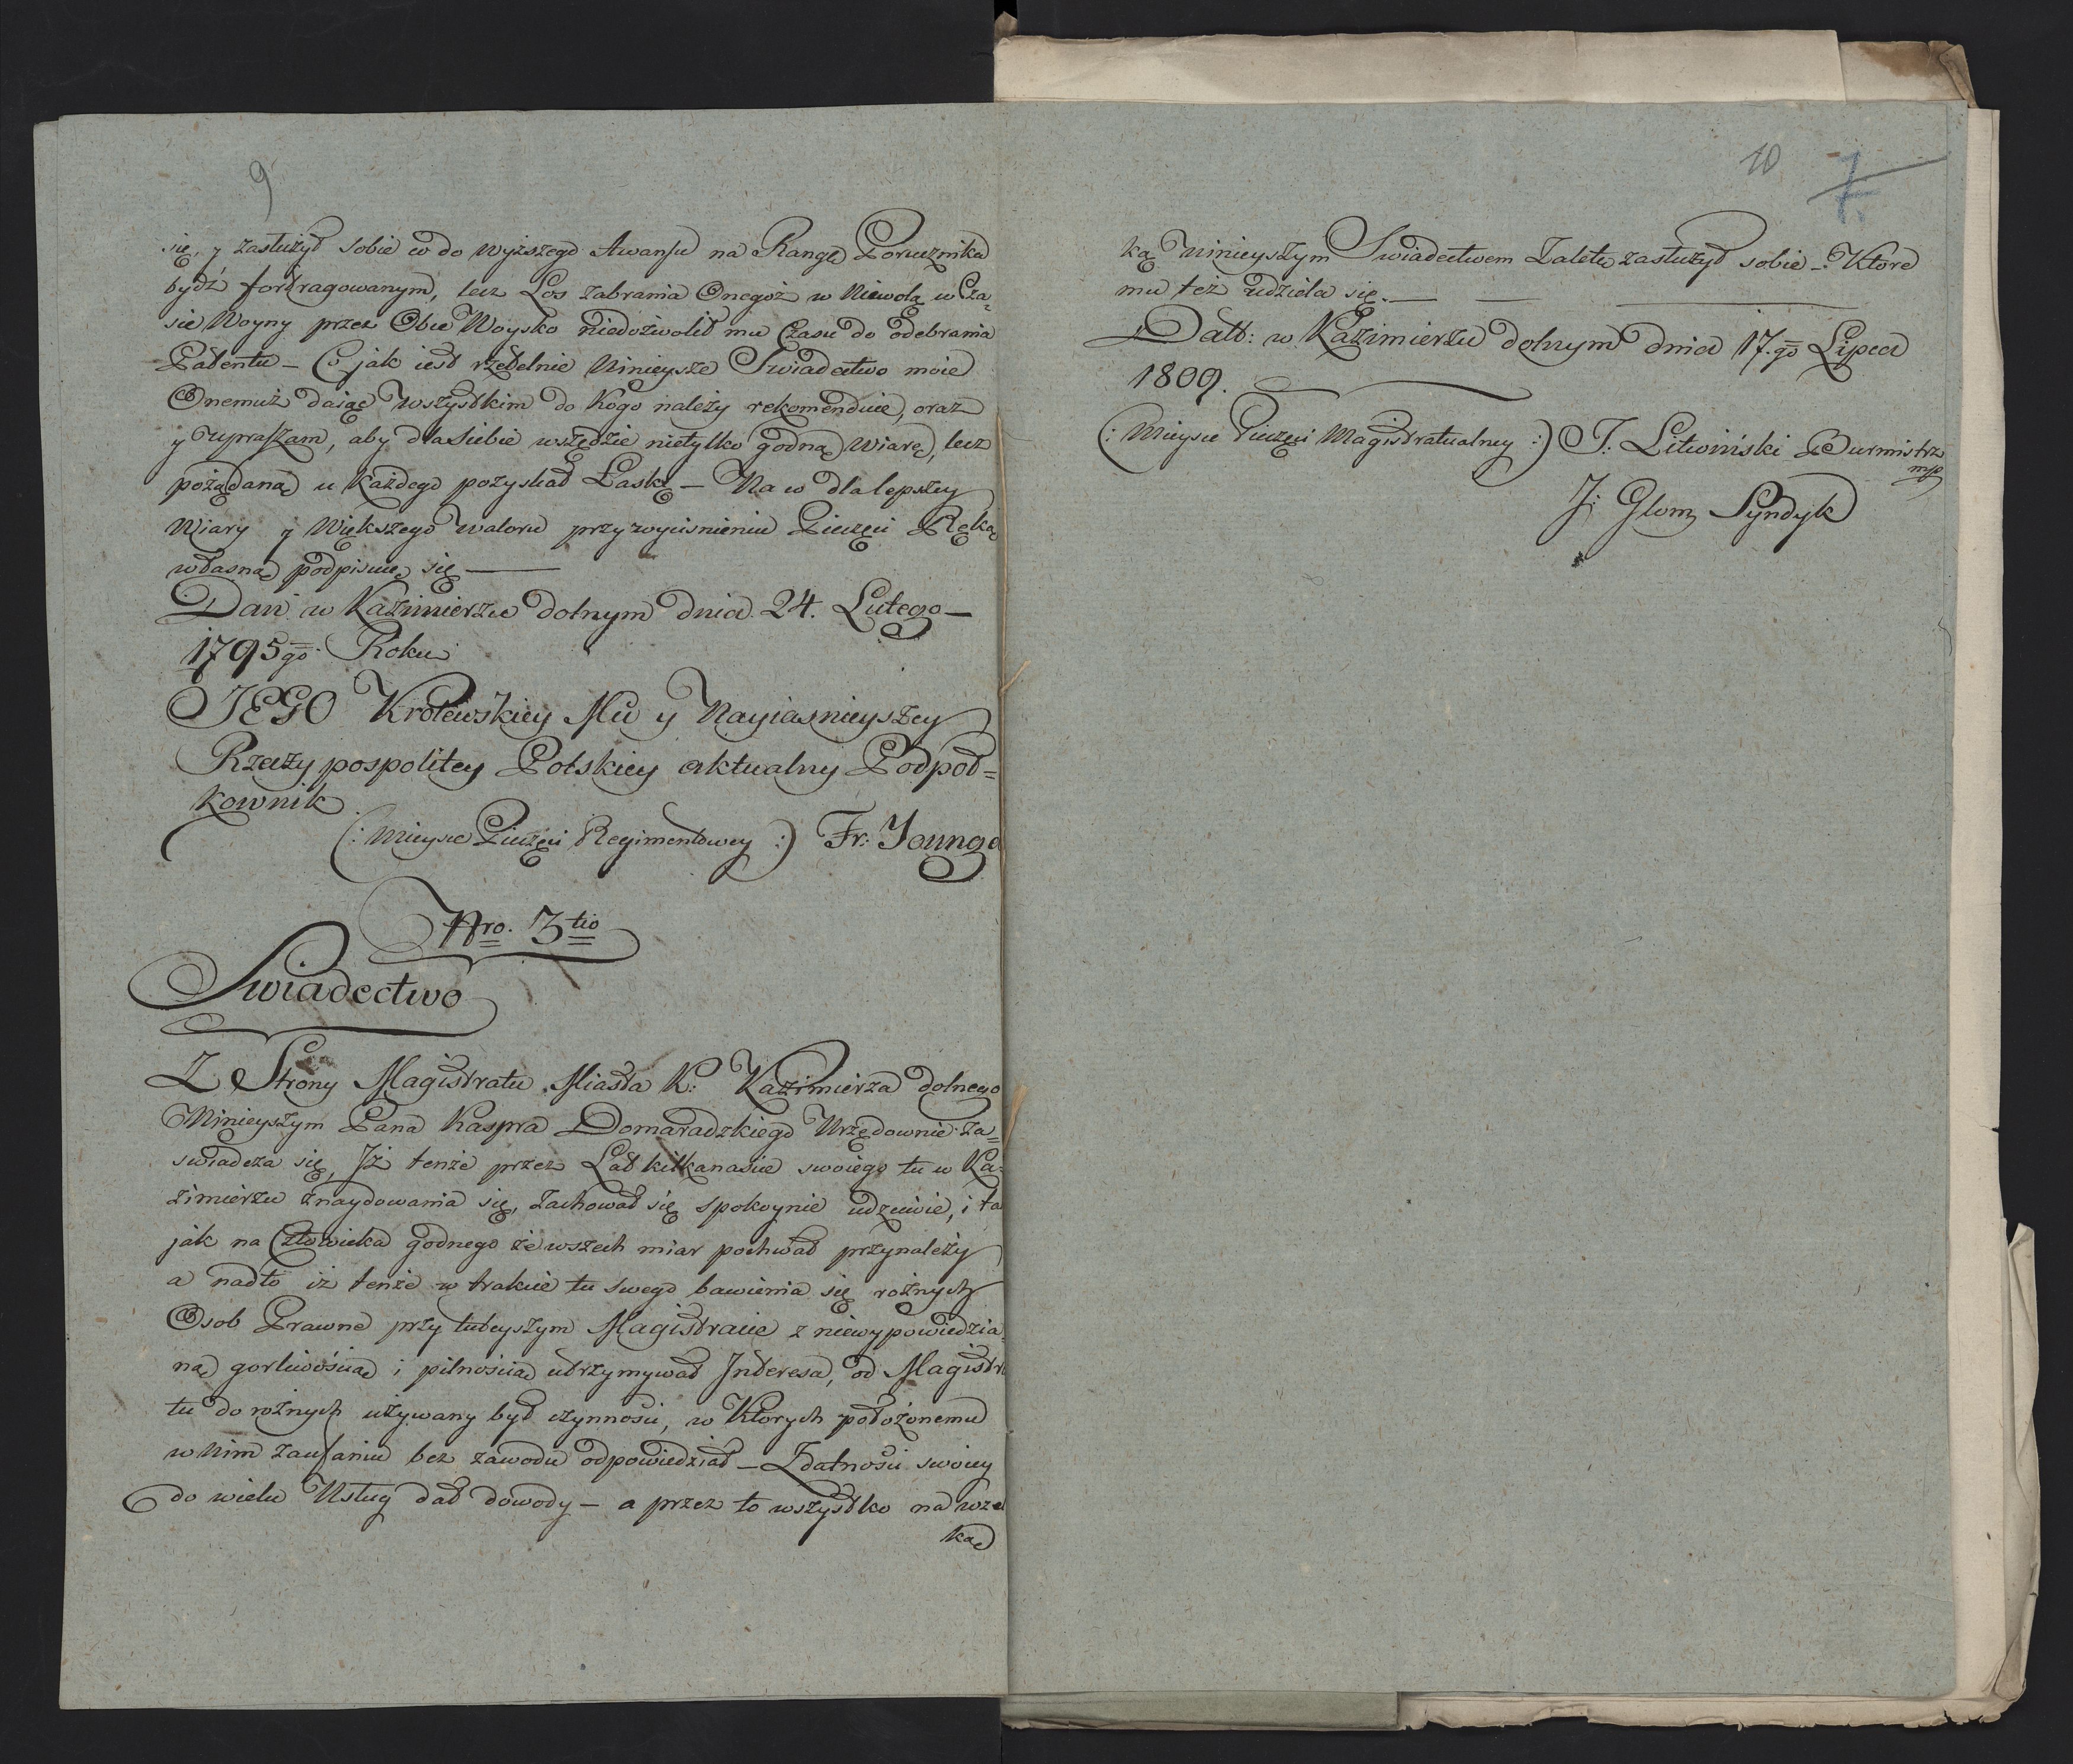 9
się, y zasłużył sobie w do wyższego Awansu na Rangę Porucznika
bydź fortragowanym, lecz Los zabrania Onegoż w Niewolą w Cza=
sie Woyny przez Obie Woysko niedozwolił mu Czasu do odebrania
Patentu – Co jak iest rzetelnie Ninieysze Swiadectwo moie
Onemuż daiąc wszystkim do Kogo należy rekomenduie, oraz
y upraszam, aby dla siebie wszędzie nietylko godną Wiarę, lecz
pożądaną u każdego pozyskał Łaskę – Na w dla lepszey
Wiary y Większego waloru przy wyciśnieniu Pieczęci Ręką
własną podpisuię się —
Dan w Kazimierzu dolnym dnia 24. Lutego –
1795go Roku
JEGO Krolewskiey Mci y Nayiasnieyszey
Rzeczy pospolitey Polskiey aktualny Podpoł=
kownik
(: Mieysce Pieczęci Regimentowey :) Fr: Jounga
Nro. 3tio
Swiadectwo
Z Strony Magistratu Miasta K: Kazimierza dolnego
Ninieyszym Pana Kaspra Domaradzkiego Urzędownie za=
swiadcza się, Jż tenże przez Lat kilkanascie swoiego tu w Ka=
zimierzu znaydowania się, zachował się spokoynie udzciwie, i ta
jak na Człowieka godnego ze wszech miar pochwał przynależy
a nadto iż tenże w trakcie tu swego bawienia się rożnych
Osob Prawne przy tuteyszym Magistracie z niewypowiedzia=
ną gorliwością i pilnoscią utrzymywał Jnteresa, od Magistra
tu do rożnych używany był czynnosci, w Ktorych położonemu
w Nim zaufaniu bez zawodu odpowiedział – Zdatnosci swoiey
do wielu Usług dał dowody – a przez to wszystko na wszel
ką
10
7.
ką Ninieyszym Swiadectwem Zaletę zasłużył sobie –. Ktore
mu też udziela się. —
Datt: w Kazimierzu dolnym dnia 17.go Lipca
1809.
(: Mieysce Pieczęci Magistratualney :) J: Litwiński Burmistrz
mp
J: Glom Syndyk